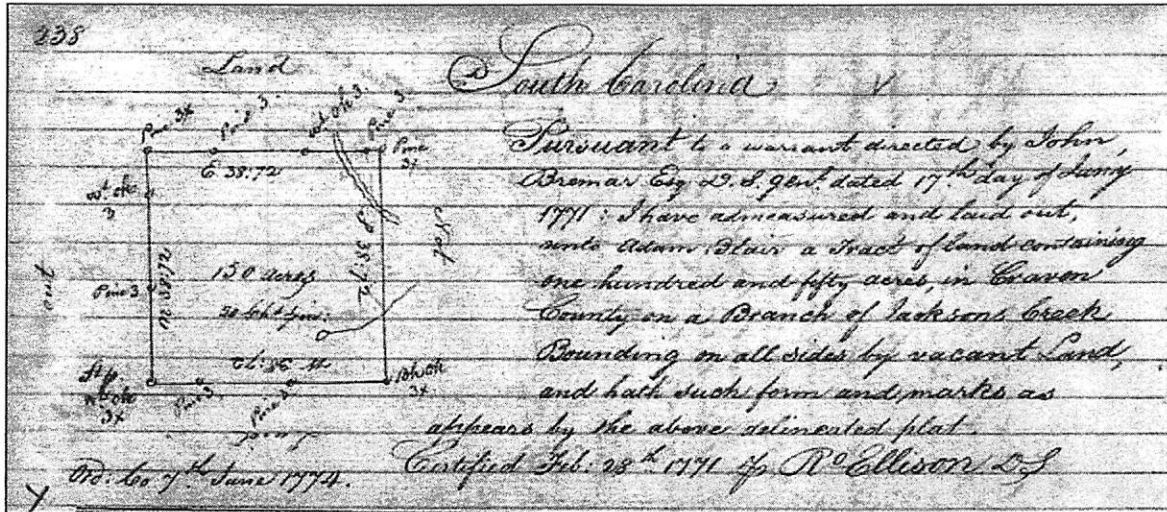 238
Land
Pine 3x
Pine 3
wt ok 3
Pine 3
Pine 3x
E. 38:72
wt. ok 3
Pine 3
out
150 acres
Not
Blk ok 3x
Pine 3
Pine 3
South Carolina
Pursuant to a warrant directed by John
Bremar Esq D. S. Genl. dated 17th day of Jany
1771: I have admeasured and laid out,
unto Adam Blair a Tract of land containing
one hundred and fifty acres, in Craven
County on a Branch of Jacksons Creek
Bounding on all sides by vacant Land,
and hath such form and marks as
appears by the above delineated plat.
Certified Feb: 28th 1771 Ro Ellison D S
Ord: Co 7th June 1774.